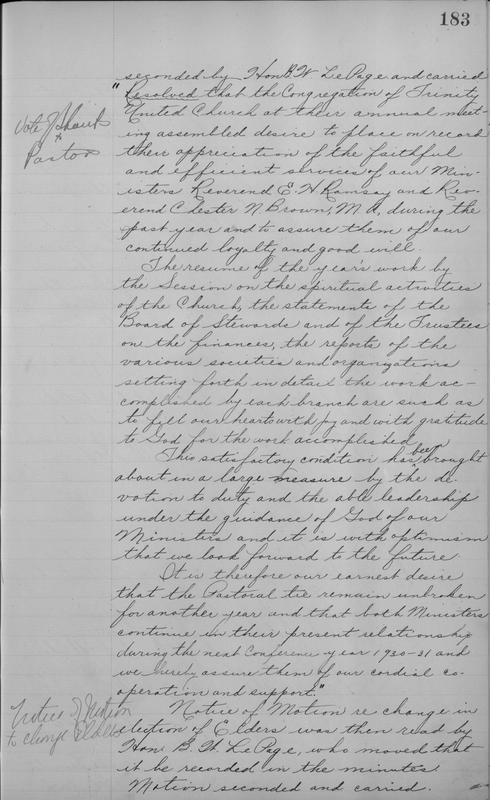 183
seconded by Hon B. W. LePage and carried
"Resolved that the Congregation of Trinity
Vote of thanks
to
Pastor
United Church at their annual meet-
ing assembled desire to place on record
their appreciation of the faithful
and efficient services of our Min-
isters Reverend E. H Ramsay and Rev-
erend Chester N. Brown, M. A, during the
past year and to assure them of our
continued loyalty and good will.
The resume of the year's work by
the Session on the spiritual activities
of the Church, the statements of the
Board of Stewards and of the Trustees
on the finances, the reports of the
various societies and organizations
setting forth in detail the work ac-
complished by each branch are such as
to fill our hearts with joy and with gratitude
to God for the work accomplished
This satisfactory condition has been brought
about in a large measure by the de-
votion to duty and the able leadership
under the guidance of God of our
Ministers and it is with optimism
that we look forward to the future.
It is therefore our earnest desire
that the Pastoral tie remain unbroken
for another year and that both Ministers
continue in their present relationship
during the next Conference year 1930-31 and
we hereby assure them of our cordial co-
operation and support."
Notice of Motion
to change Elders
Notice of Motion re change in
election of Elders was then read by
Hon B. W. LePage, who moved that
it be recorded in the minutes.
Motion seconded and carried.